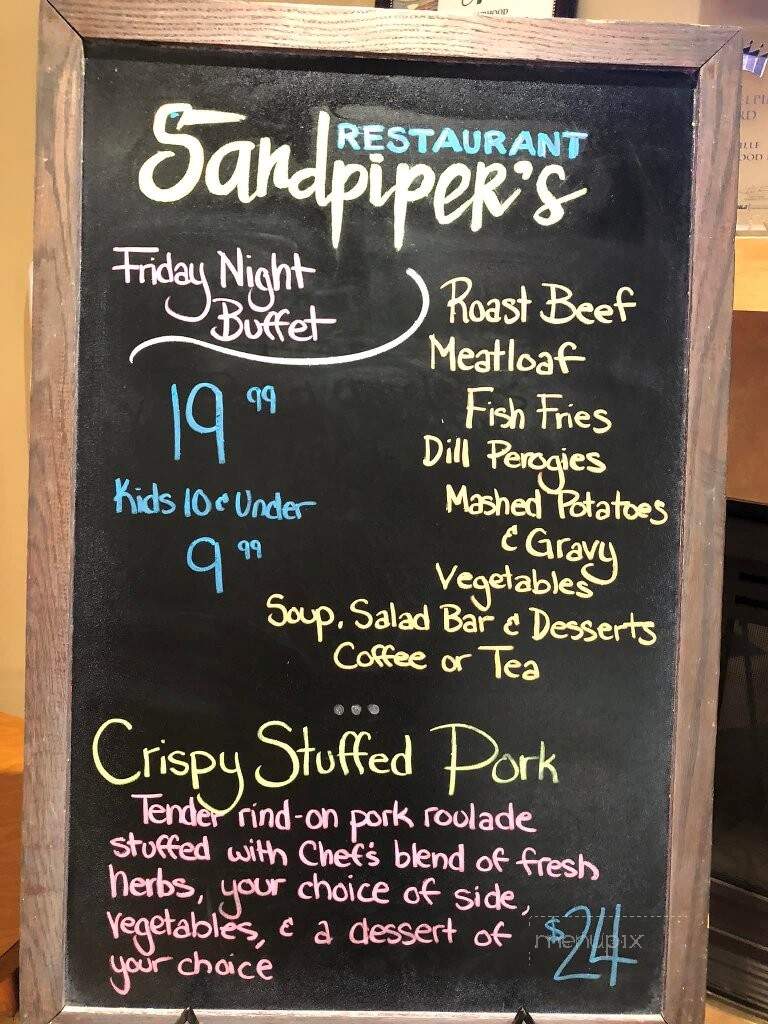 RESTAURANT
Sandpiper's
Friday Night
Buffet
19 99
Kids 10 & Under
9 99
Roast Beef
Meatloaf
Fish Fries
Dill Perogies
Mashed Potatoes
& Gravy
Vegetables
Soup, Salad Bar & Desserts
Coffee or Tea
...
Crispy Stuffed Pork
Tender rind-on pork roulade
stuffed with Chef's blend of fresh
herbs, your choice of side,
vegetables, & a dessert of
your choice
$24
menupix